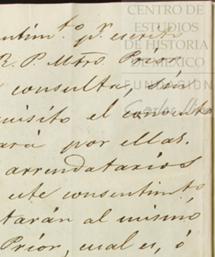 CENTRO DE
ESTUDIOS
DE HISTORIA
DE MÉXICO
FUNDACIÓN
Carlos Slim
sentim.to p.r escrito
R. P. Mtro. Prior
consulta, sin
quisito el convento
ará por ellas.
arrendatarios
este consentim.to
tarán al mismo
Prior, cual es, ó